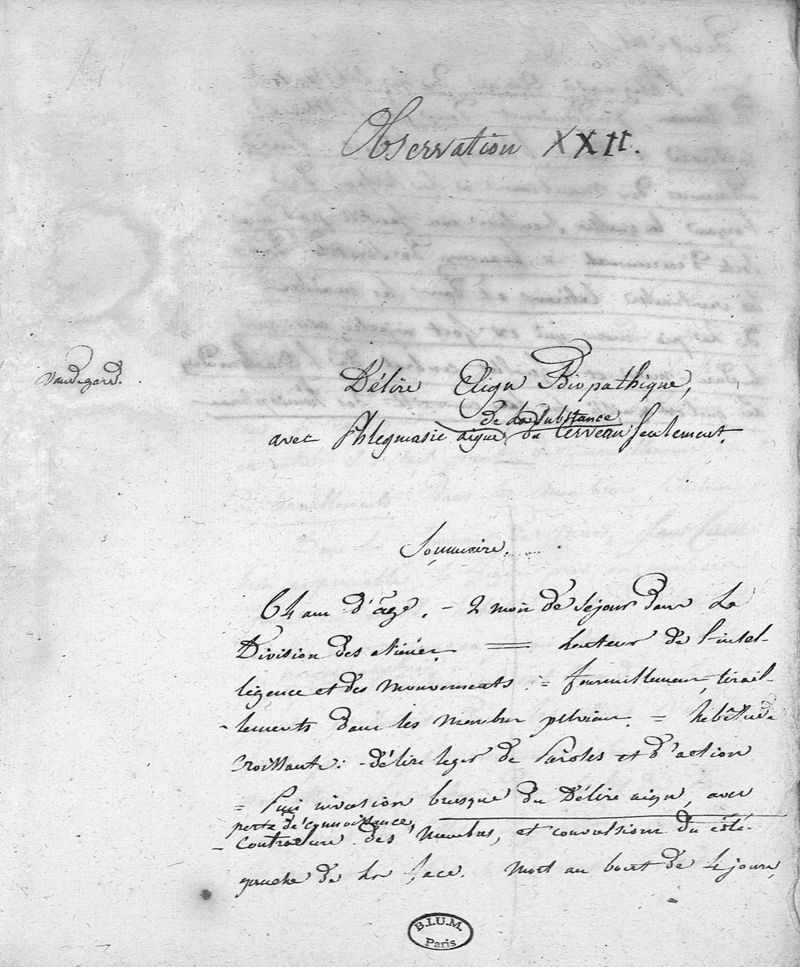 Observation XXII.
Vaudegard.
Délire Aigu Biopathique,
de la substance
avec Phlegmasie aigue du Cerveau seulement.
Sommaire.
64 ans d'âge. - 2 mois de séjour dans la
Division des aliénés. = lenteur de l'intel-
ligence et des mouvements = fourmillement, tirail-
lements dans les membres pelviens. = hébétude
croissante: - délire leger de Paroles et d'action
= Puis invasion brusque du Délire aigu, avec
perte de connoissance,
- Contracture des Membres, et convulsions du côté
gauche de la face. Mort au bout de 4 jours,
B.I.U.M.
Paris